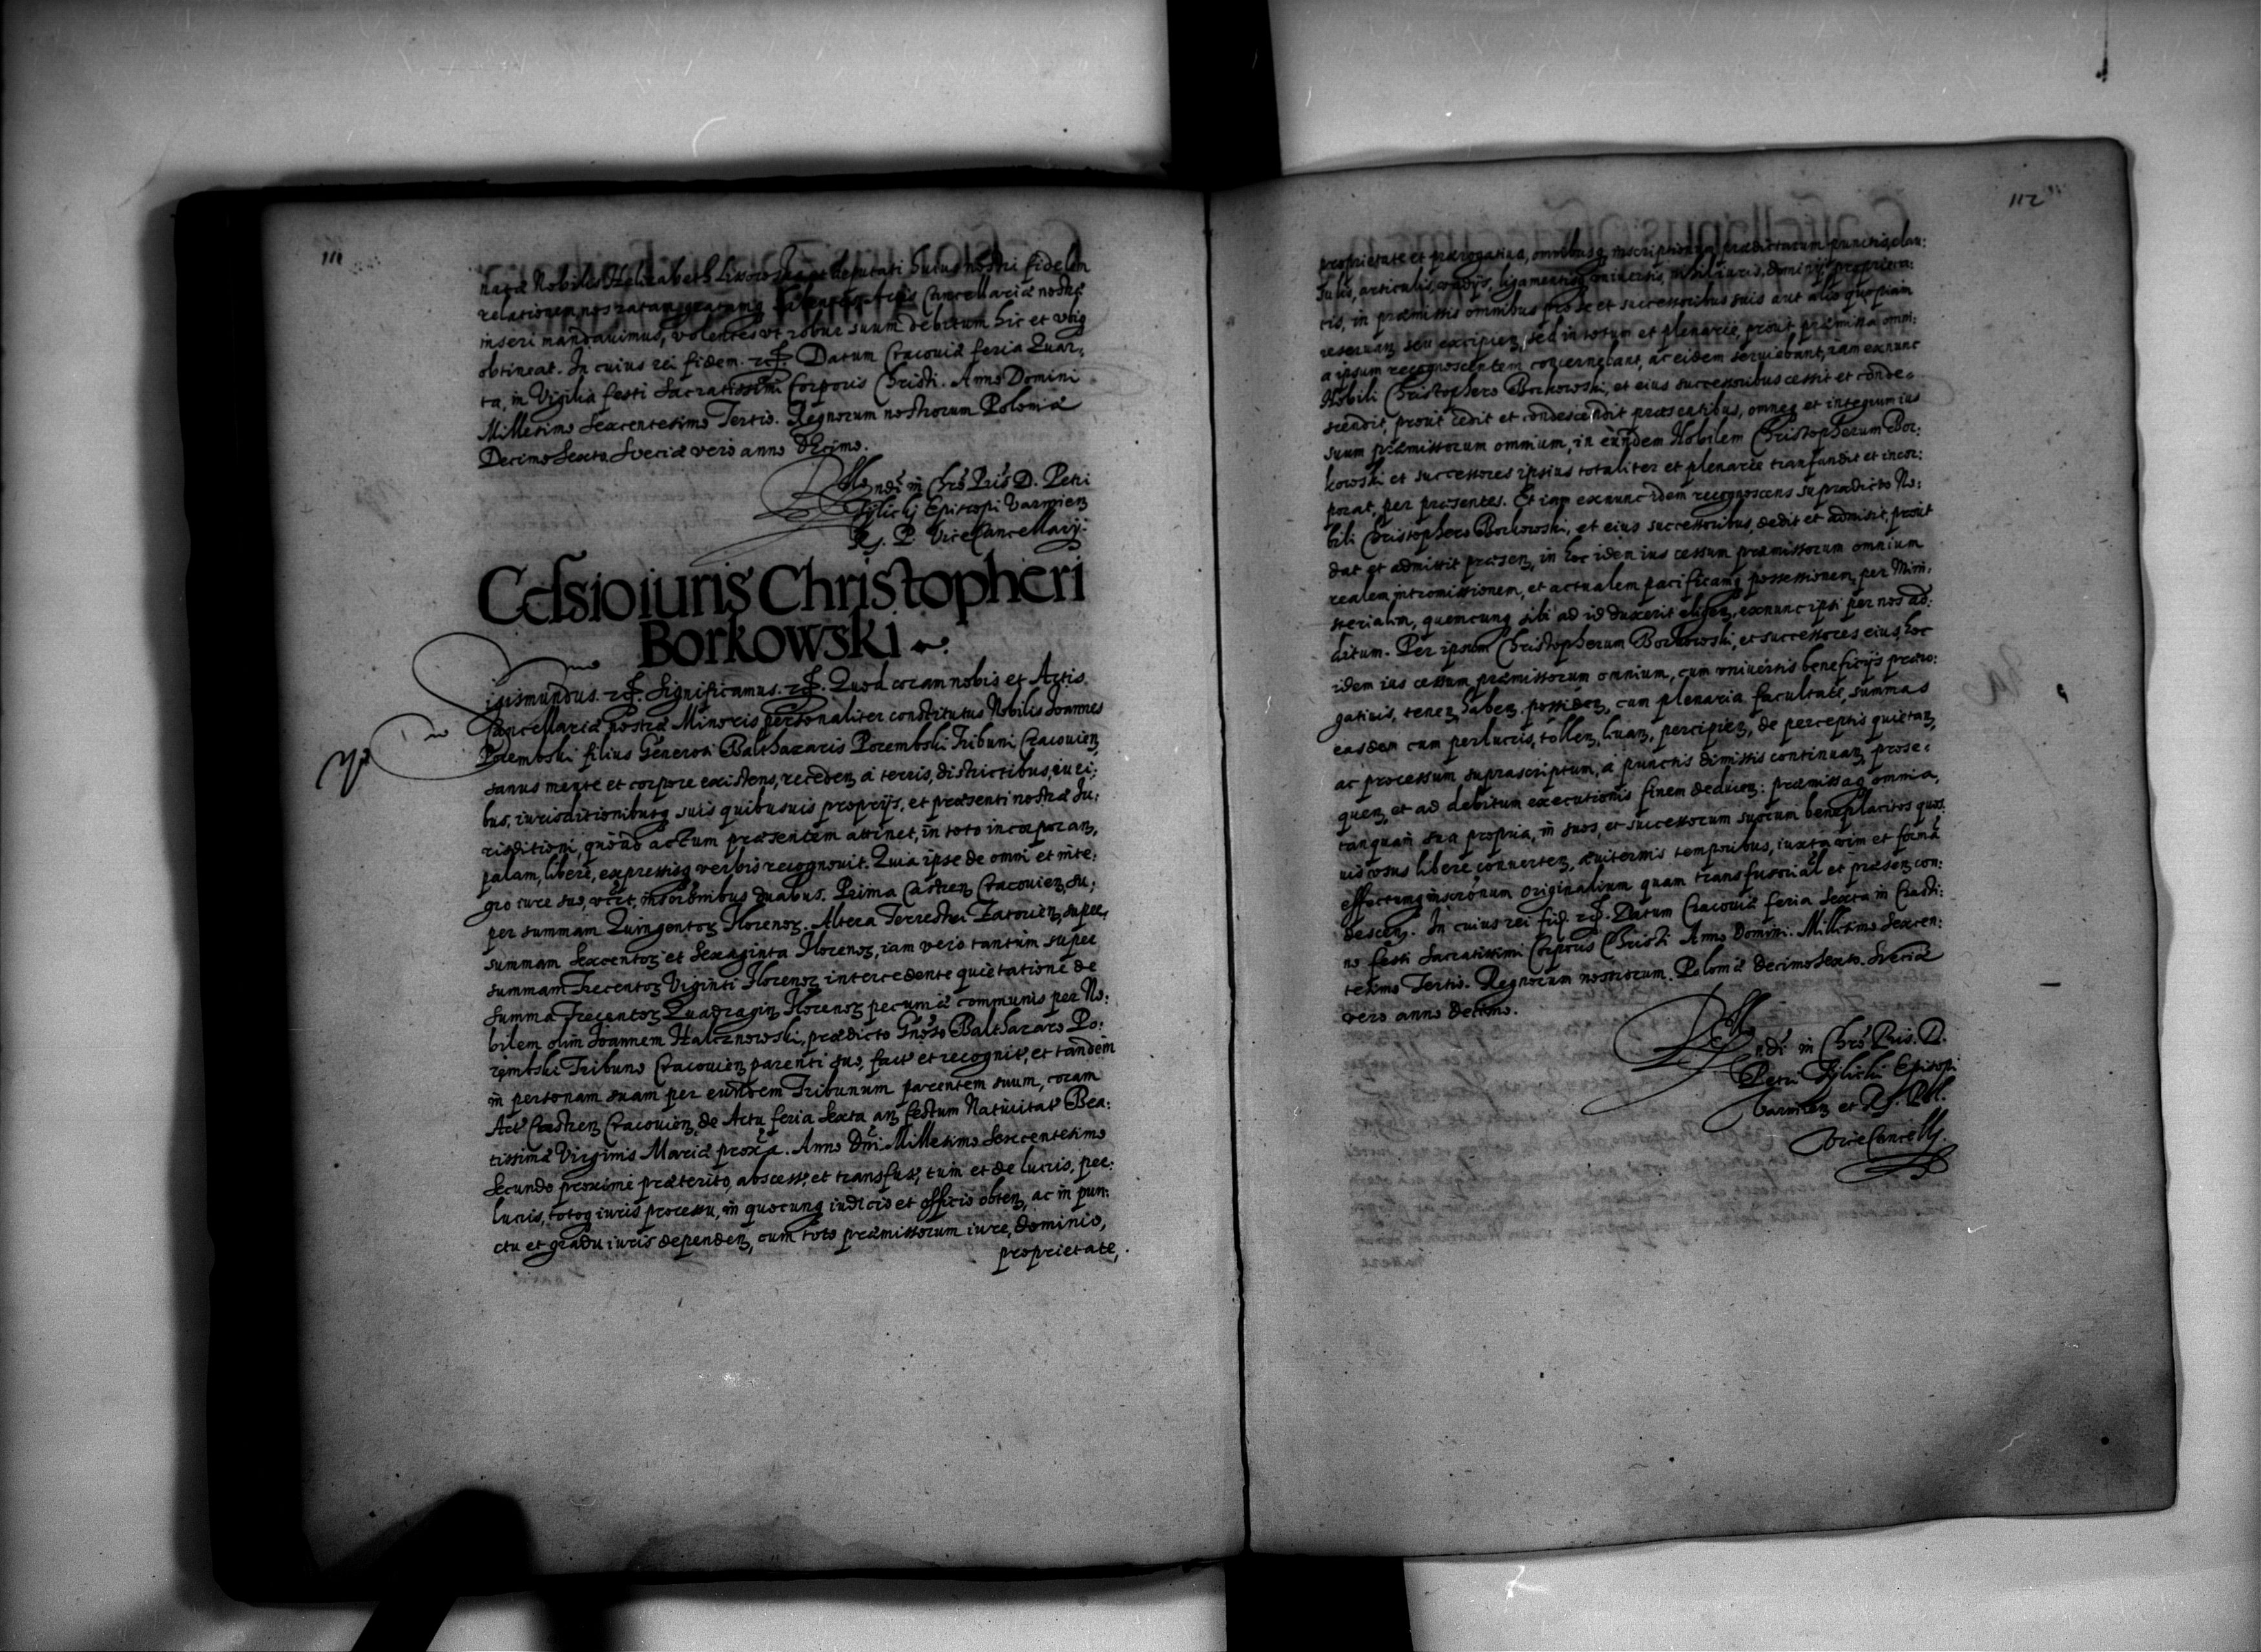 111
natæ Nobiles Helizabeth et deputati huius nostri fidelem
relationem, nos ratam gratamq habentes Actis Cancellariæ nostræ
inseri mandauimus, volentes vt robur suum debitum hic et vbiq
obtineat. In cuius rei fidem. Datum Cracouiæ feria Quar,
ta, in Vigilia festi Sacratissimi Corporis Christi. Anno Domini
Millesimo Sexcentesimo Tertio. Regnorum nostrorum Poloniæ
Decimo Sexto Sveciæ vero anno decimo.
Rello ndi in Chro Pris D. Petri
Tylicki Episcopi Varmien
R. P. Vice Cancellarij.
Cessio iuris Christopheri
Borkowski
igismundus. Significamus. Quod coram nobis et Actis
Cancellariæ nostræ Minoris personaliter constitutus Nobilis Joannes
Porembski filius Generosi Balthazaris Porembski Tribuni Cracouien
sanus mente et corpore existens, receden a terris, districtibus, iu
bus, iurisditionibusq suis quibusuis proprijs, et præsenti nostræ Iu,
risditioni, quoad actum præsentem attinet, in toto incorporan,
palam, libere, expressisq verbis recognouit. Quia ipse de omni et inte,
gro iure suo, inscriptionibus duabus. Prima Castren Cracouien, su,
per summam Quingentor Florenor. Altera Terrestri Zatorien, super,
summam Sexcentor et Sexaginta Florenor, iam vero tantum super
summam Trecentor Viginti Florenor intercedente quietatione de
summa Trecentor Quadragin Florenor pecuniæ communis per No:
bilem olim Joannem Halcznowski, prædicto Gnoso Balthazaro Po:
rembski Tribuno Cracouien parenti suo, fact et recognit, et tandem
in personam suam per eundem Tribunum parentem suum, coram
Act Castren Cracouien, de Actu feria Sexta an festum Natiuitat Bea:
tissimæ Virginis Mariæ proxa. Anno Dni Millesimo Sexcentesimo
Secundo proxime præterito, abscess, et transfus, tum et de lucris, per:
lucris, totoq iuris processu, in quocunq iudicio et officio obten, ac in pun:
ctu et gradu iuris dependen, cum toto præmissorum iure, dominio,
proprietate,
112
proprietate et prærogatiua, omnibusq inscriptionum prædictarum punctis, clau:
sulis, articulis, vadijs, ligamentisq vniuersis, nihil iuris, dominij, proprieta:
tis, in præmissis omnibus pro se et successoribus suis aut alio quopiam
reseruan seu excipien, sed in totum et plenarie, prout præmissa omni:
a ipsum recognoscentem concernebant, ac eidem seruiebant, iam exnunc
Nobili Christophero Borkowski, et eius successoribus cessit et conde:
scendit, prout cedit et condescendit præsentibus, omneq et integrum ius
suum præmissorum omnium, in eundem Nobilem Christopherum Bor:
kowski et successores ipsius totaliter et plenarie transfundit et incor:
porat, per præsentes. Et iam exnunc idem recognoscens supradicto No:
bili Christophero Borkowski, et eius successoribus, dedit et admisit, prout
dat et admittit præsen, in hoc idem ius cessum præmissorum omnium
realem intromissionem, et actualem pacificamq possessionem, per Mini:
sterialem, quemcunq sibi ad id duxerit eligen, exnunc ipsi per nos ad:
ditum. Per ipsum Christopherum Borkowski, et successores eius, hoc
idem ius cessum præmissorum omnium, cum vniuersis beneficijs præro:
gatiuis, tenen, haben, possiden, cum plenaria facultate, summas
easdem cum perlucris, tollen, leuan, percipien, de perceptis quietan,
ac processum suprascriptum, a punctis dimissis continuan, prose:
quen, et ad debitum executionis finem deducen: præmissaq omnia,
tanquam sua propria, in suos, et successorum suorum beneplacitos quos
uis vsus libere conuerten, æuiternis temporibus, iuxta vim et formæ
effectumq inscronum originalium quam transfusorial et præsen, con:
descens. In cuius rei fid. Datum Cracouiæ feria Sexta in Crasti:
no festi Sacratissimi Corporis Christi Anno Domini. Millesimo Sexcen:
tesimo Tertio. Regnorum nostrorum. Poloniæ decimo Sexto. Sveciæ
vero anno decimo.
Rello ndi in Chro Pris. D.
Petri Tylicki Episcopi
Varmien et R. P.
Vice Cancell.